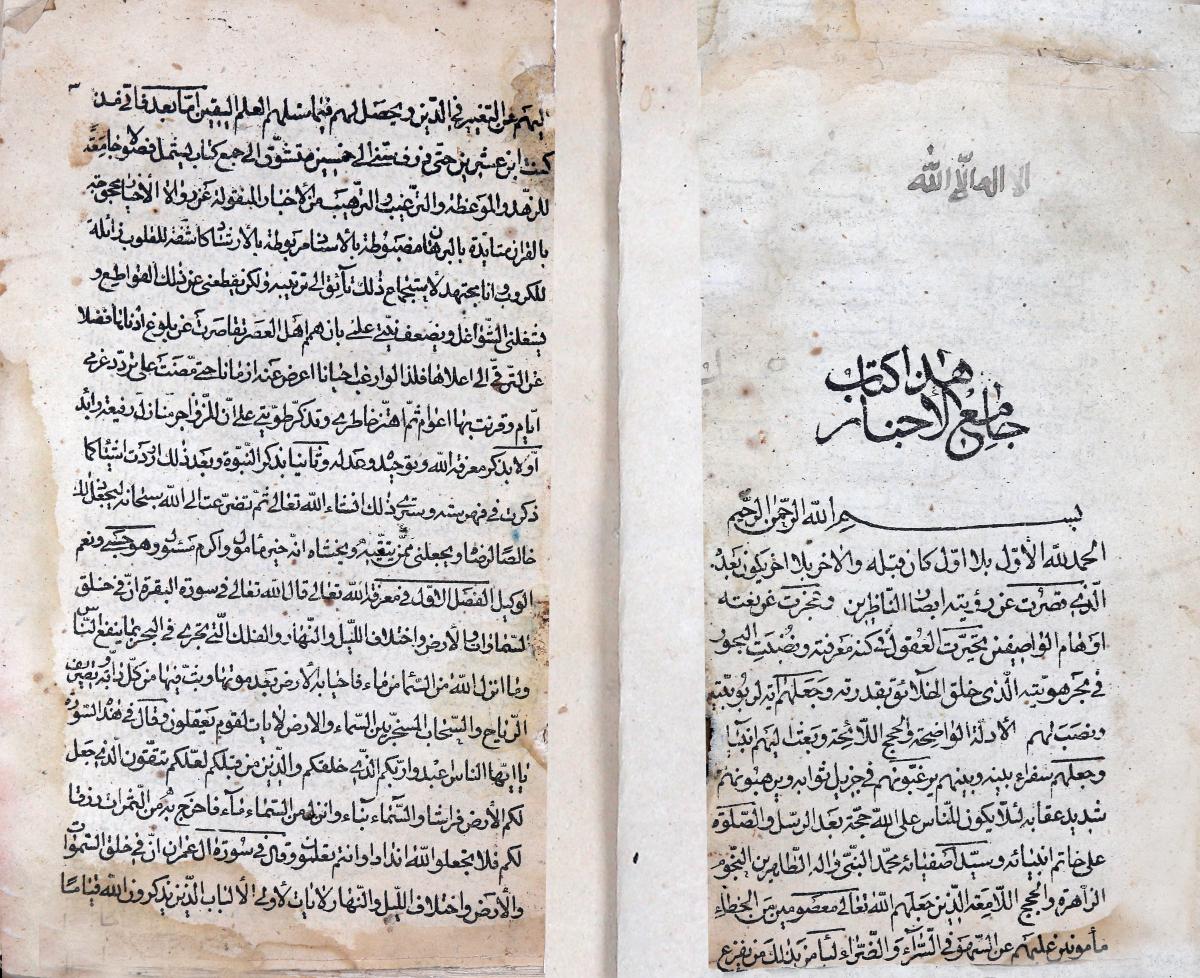 الا اله الا الله
هذا كتاب
جامع الأخبار
بسم الله الرحمن الرحيم
الحمد لله الأول بلا اول كان قبله والاخر بلا اخر يكون بعده
الذي قصرت عن رؤيته ابصار الناظرين وعجزت عن نعته
اوهام الواصفين تحيرت العقول في كنه معرفته البحور
في بحر هويته الذي خلق الخلائق بقدرته وجعلهم لربوبيته
ونصب لهم الأدلة الواضحة والحجج اللائحة وبعث اليهم انبيا
وجعلهم سفراء بينه وبينهم يرغبونهم في جزيل ثوابه ويرهبونهم
شديد عقابه لئلا يكون للناس على الله حجة بعد الرسل والصلوة
على خاتم انبيائه وسيد اصفيائه محمد النبي واله الطاهرين النجوم
الزاهرة والحجج اللامعة الذين جعلهم الله تعالى معصومين من الخطاء
مأمونين عليهم عن السهو في السراء والضراء ليأمن بذلك من يفزع
اليهم عن التغيير في الدين ويحصل لهم فيما سئلهم العلم اليقين اما بعد فاني قد
كنت ابن عشرين حتى ذرف سني الى خمسين متشوق الى جمع كتاب يشتمل فصولا جامعة
للزهد والموعظة والترغيب والترهيب من الاخبار المنقولة عن والا الأخيار محجوجة
بالقران متأيدة بالبرهان مضبوطة بالاسناد مربوطة بالارشاد كاشفة للقلوب زائلة
للكروب وانا مجتهد لاستجماع ذلك تآئق الى ترتيبه ولكن يقطعني عن ذلك القواطع و
يشغلني الشواغل ويضعف نيتي علي بان همم اهل العصر تقاصرت عن بلوغ ادناها فضلا
عن الترقي الى اعلاها فلذا لو ارغب احيانا اعرض عنه ازمانا حتى مضت على تردد عزمي
ايام وقرنت بها اعوام ثم اهتز خاطري وتذكر طويتي على ان للمزواجر منازل رفيعة وابدأ
أولا بذكر معرفة الله وتوحيده وعدله وثانيا بذكر النبوة وبعد ذلك اردت اشيائا كما
ذكرت في فهرسته وسترى ذلك انشاء الله تعالى ثم تضرعت الى الله سبحانه ليجعل ذلك
خالصا لرضاه ويجعلني ممن يتقيه ويخشاه انه خير مأمول واكرم مسئول وهو حسبي ونعم
الوكيل الفصل الأول في معرفة الله تعالى قال الله تعالى في سورة البقرة ان في خلق
السموات والأرض واختلاف الليل والنهار والفلك التي تجري في البحر بما ينفع الناس
وما انزل الله من السماء من ماء فاحيا به الأرض بعد موتها وبث فيها من كل دابة وتصريف
الرياح والسحاب المسخر بين السماء والارض لايات لقوم يعقلون وقال في هذه السورة
يا ايها الناس اعبدوا ربكم الذي خلقكم والذين من قبلكم لعلكم تتقون الذي جعل
لكم الأرض فراشا والسماء بناء وانزل من السماء مآء فاخرج به من الثمرات رزقا
لكم فلا تجعلوا الله اندادا وانتم تعلمون وقال في سورة ال عمران ان في خلق السموات
والأرض واختلاف الليل والنهار لايات لأولي الألباب الذين يذكرون الله قياما